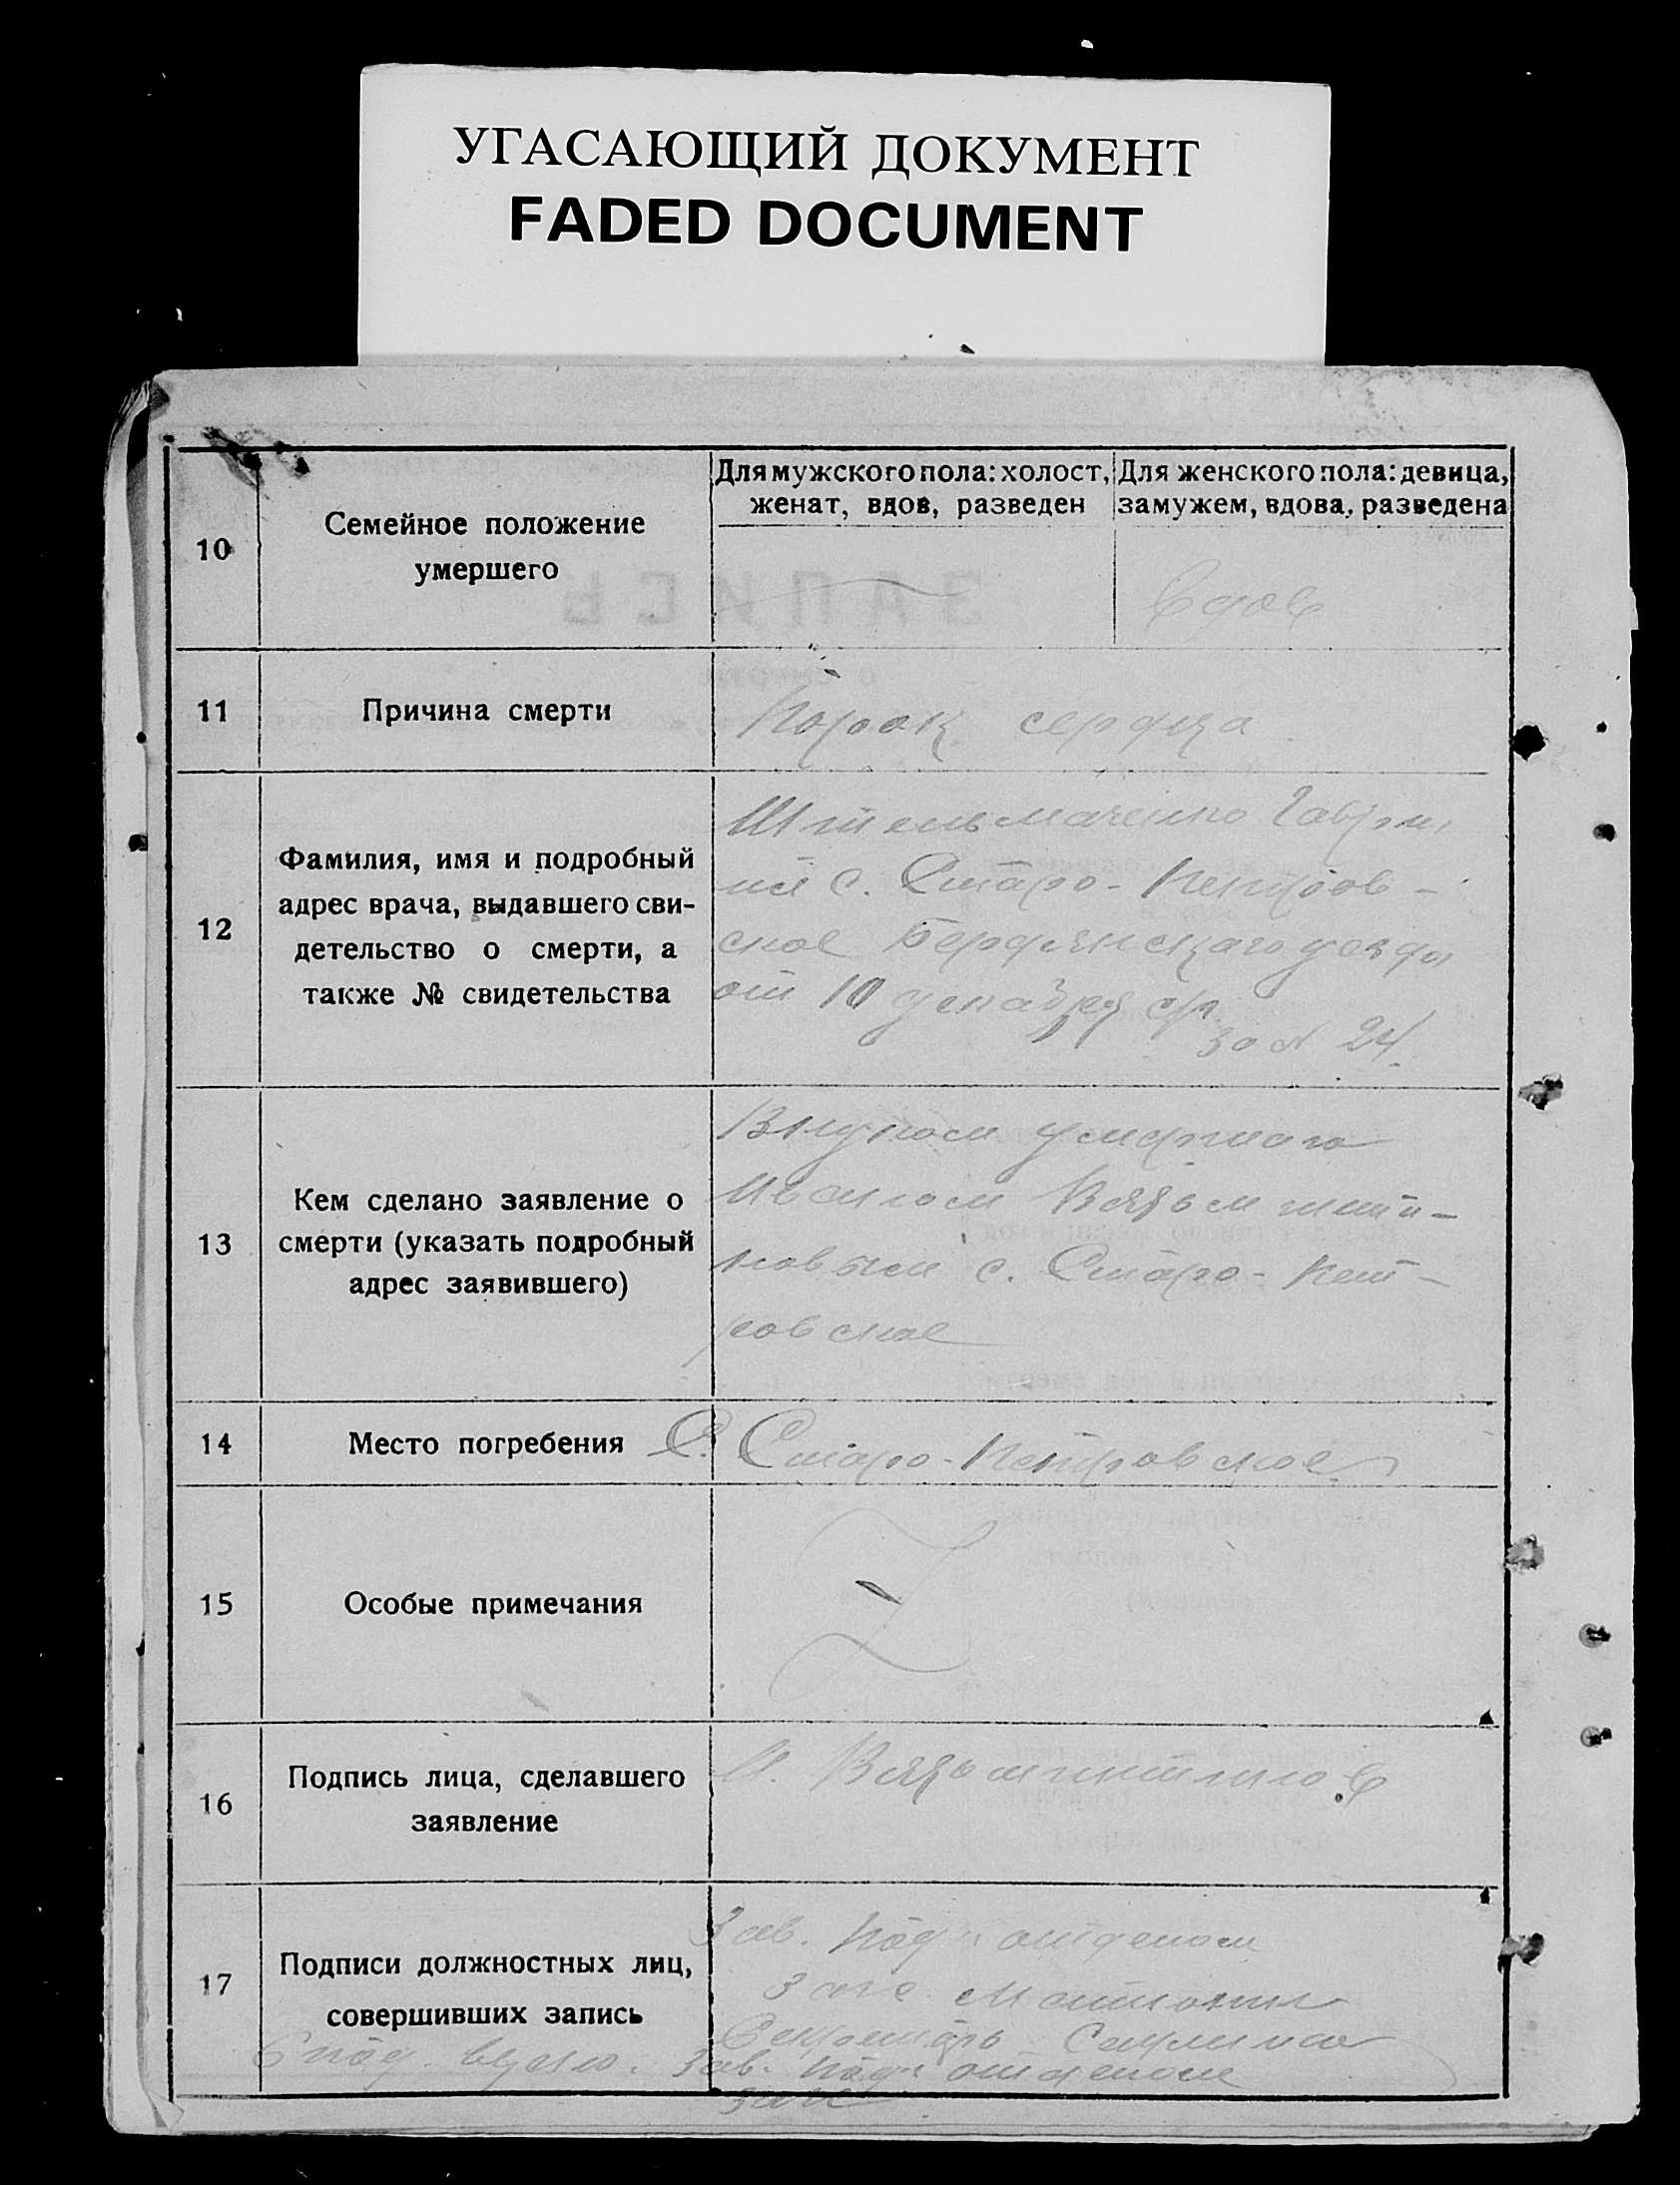 УГАСАЮЩИЙ ДОКУМЕНТ
FADED DOCUMENT
10
Семейное положение
умершего
Для мужского пола: холост,
женат, вдов, разведен
Для женского пола: девица,
замужем, вдова, разведена
вдов
11
Причина смерти
Порок сердца
12
Фамилия, имя и подробный
адрес врача, выдавшего сви-
детельство о смерти, а
также № свидетельства
Штельмаченко
с. Старо-Петров-
ское Бердянскаго уезда
от 10 декабря с/г.
за № 24.
13
Кем сделано заявление о
смерти (указать подробный
адрес заявившего)
Внуком умершаго
Иваном Вязьмити-
новым с. Старо-Пет-
ровское
14
Место погребения
С. Старо-Петровское
15
Особые примечания
16
Подпись лица, сделавшего
заявление
И.
17
Подписи должностных лиц,
совершивших запись
Зав. Под'отделом
Загс
Секретарь
С под. верно. Зав. Под'отделом
Загс